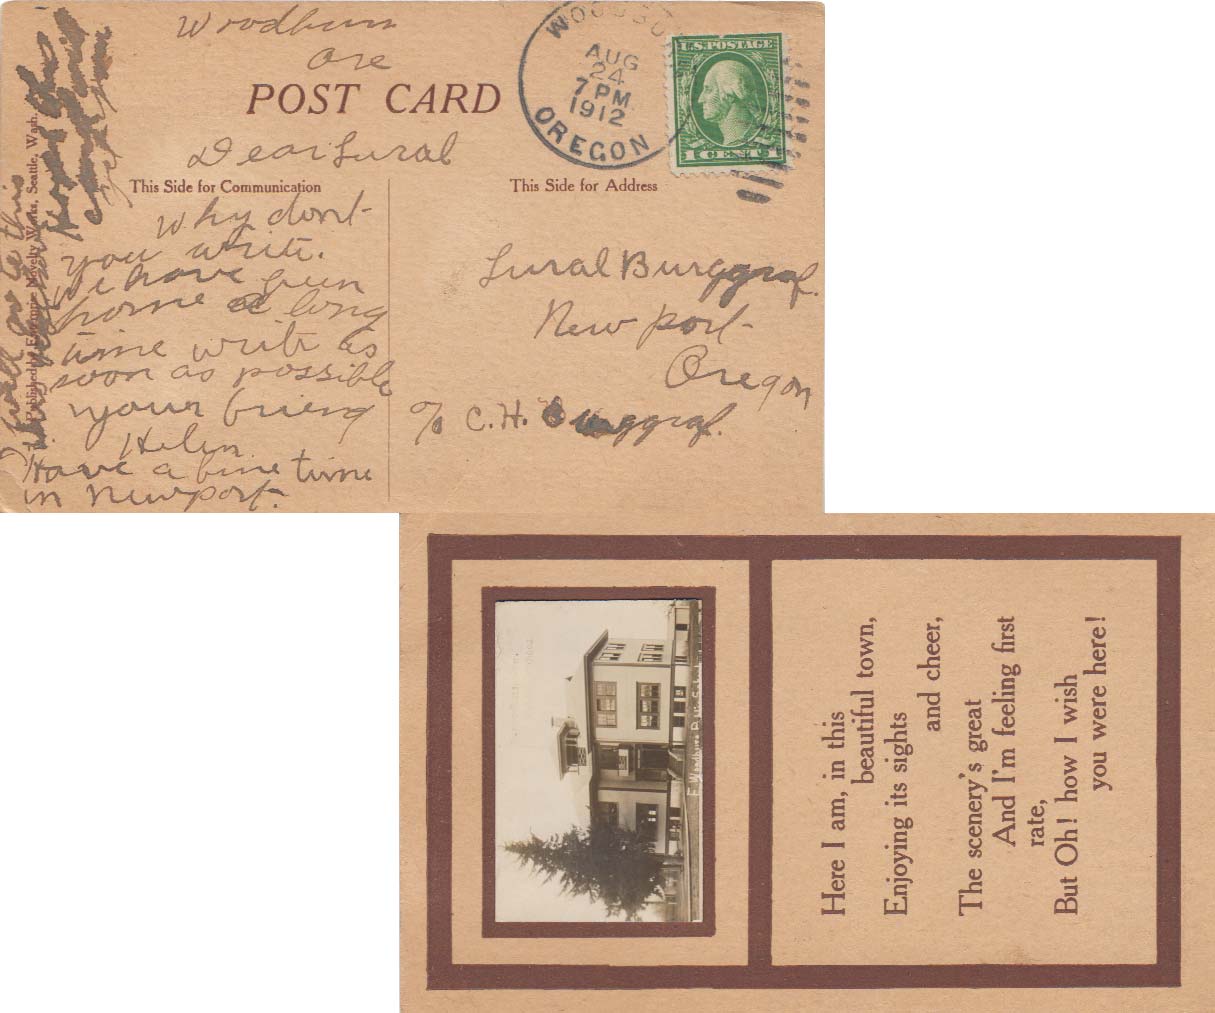 Woodburn
Ore
POST CARD
WOODBU
AUG
24
7 PM
1912
OREGON
U.S. POSTAGE
1 CENT 1
Dear Lural
This Side for Communication
This Side for Address
Why dont
you write.
We have been
home a long
time write as
soon as possible
your friend
Helen
Have a fine time
in Newport.
Lural Burggraf.
New port
Oregon
c/o C.H. Burggraf.
Novelty Works, Seattle, Wash.
F. Woodburn Public School
Here I am, in this
beautiful town,
Enjoying its sights
and cheer,
The scenery's great
And I'm feeling first
rate,
But Oh! how I wish
you were here!